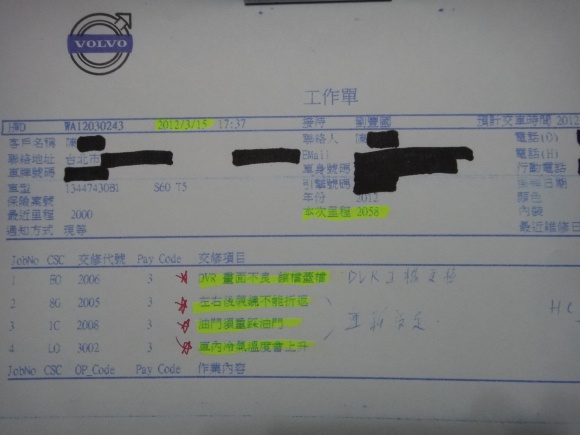 VOLVO
工作單
HWD WA12030243 2012/3/15 17:37 接待 預計交車時間 2012
客戶名稱 陳 聯絡人 陳 電話(O)
聯絡地址 台北市 EMail 電話(H)
車牌號碼 車身號碼 行動電話
車型 13447430B1 S60 T5 引擎號碼
保險案號 年份 2012 顏色
最近里程 2000 本次里程 2058 內裝
通知方式 現等 最近維修日
JobNo CSC 交修代號 Pay Code 交修項目
1 2006 3 DVR 畫面不良
2 8G 2005 3 左右後視鏡不能折返
3 1C 2008 3 油門須重踩油門
4 LO 3002 3 車內冷氣溫度會上升
JobNo CSC OP_Code Pay Code 作業內容